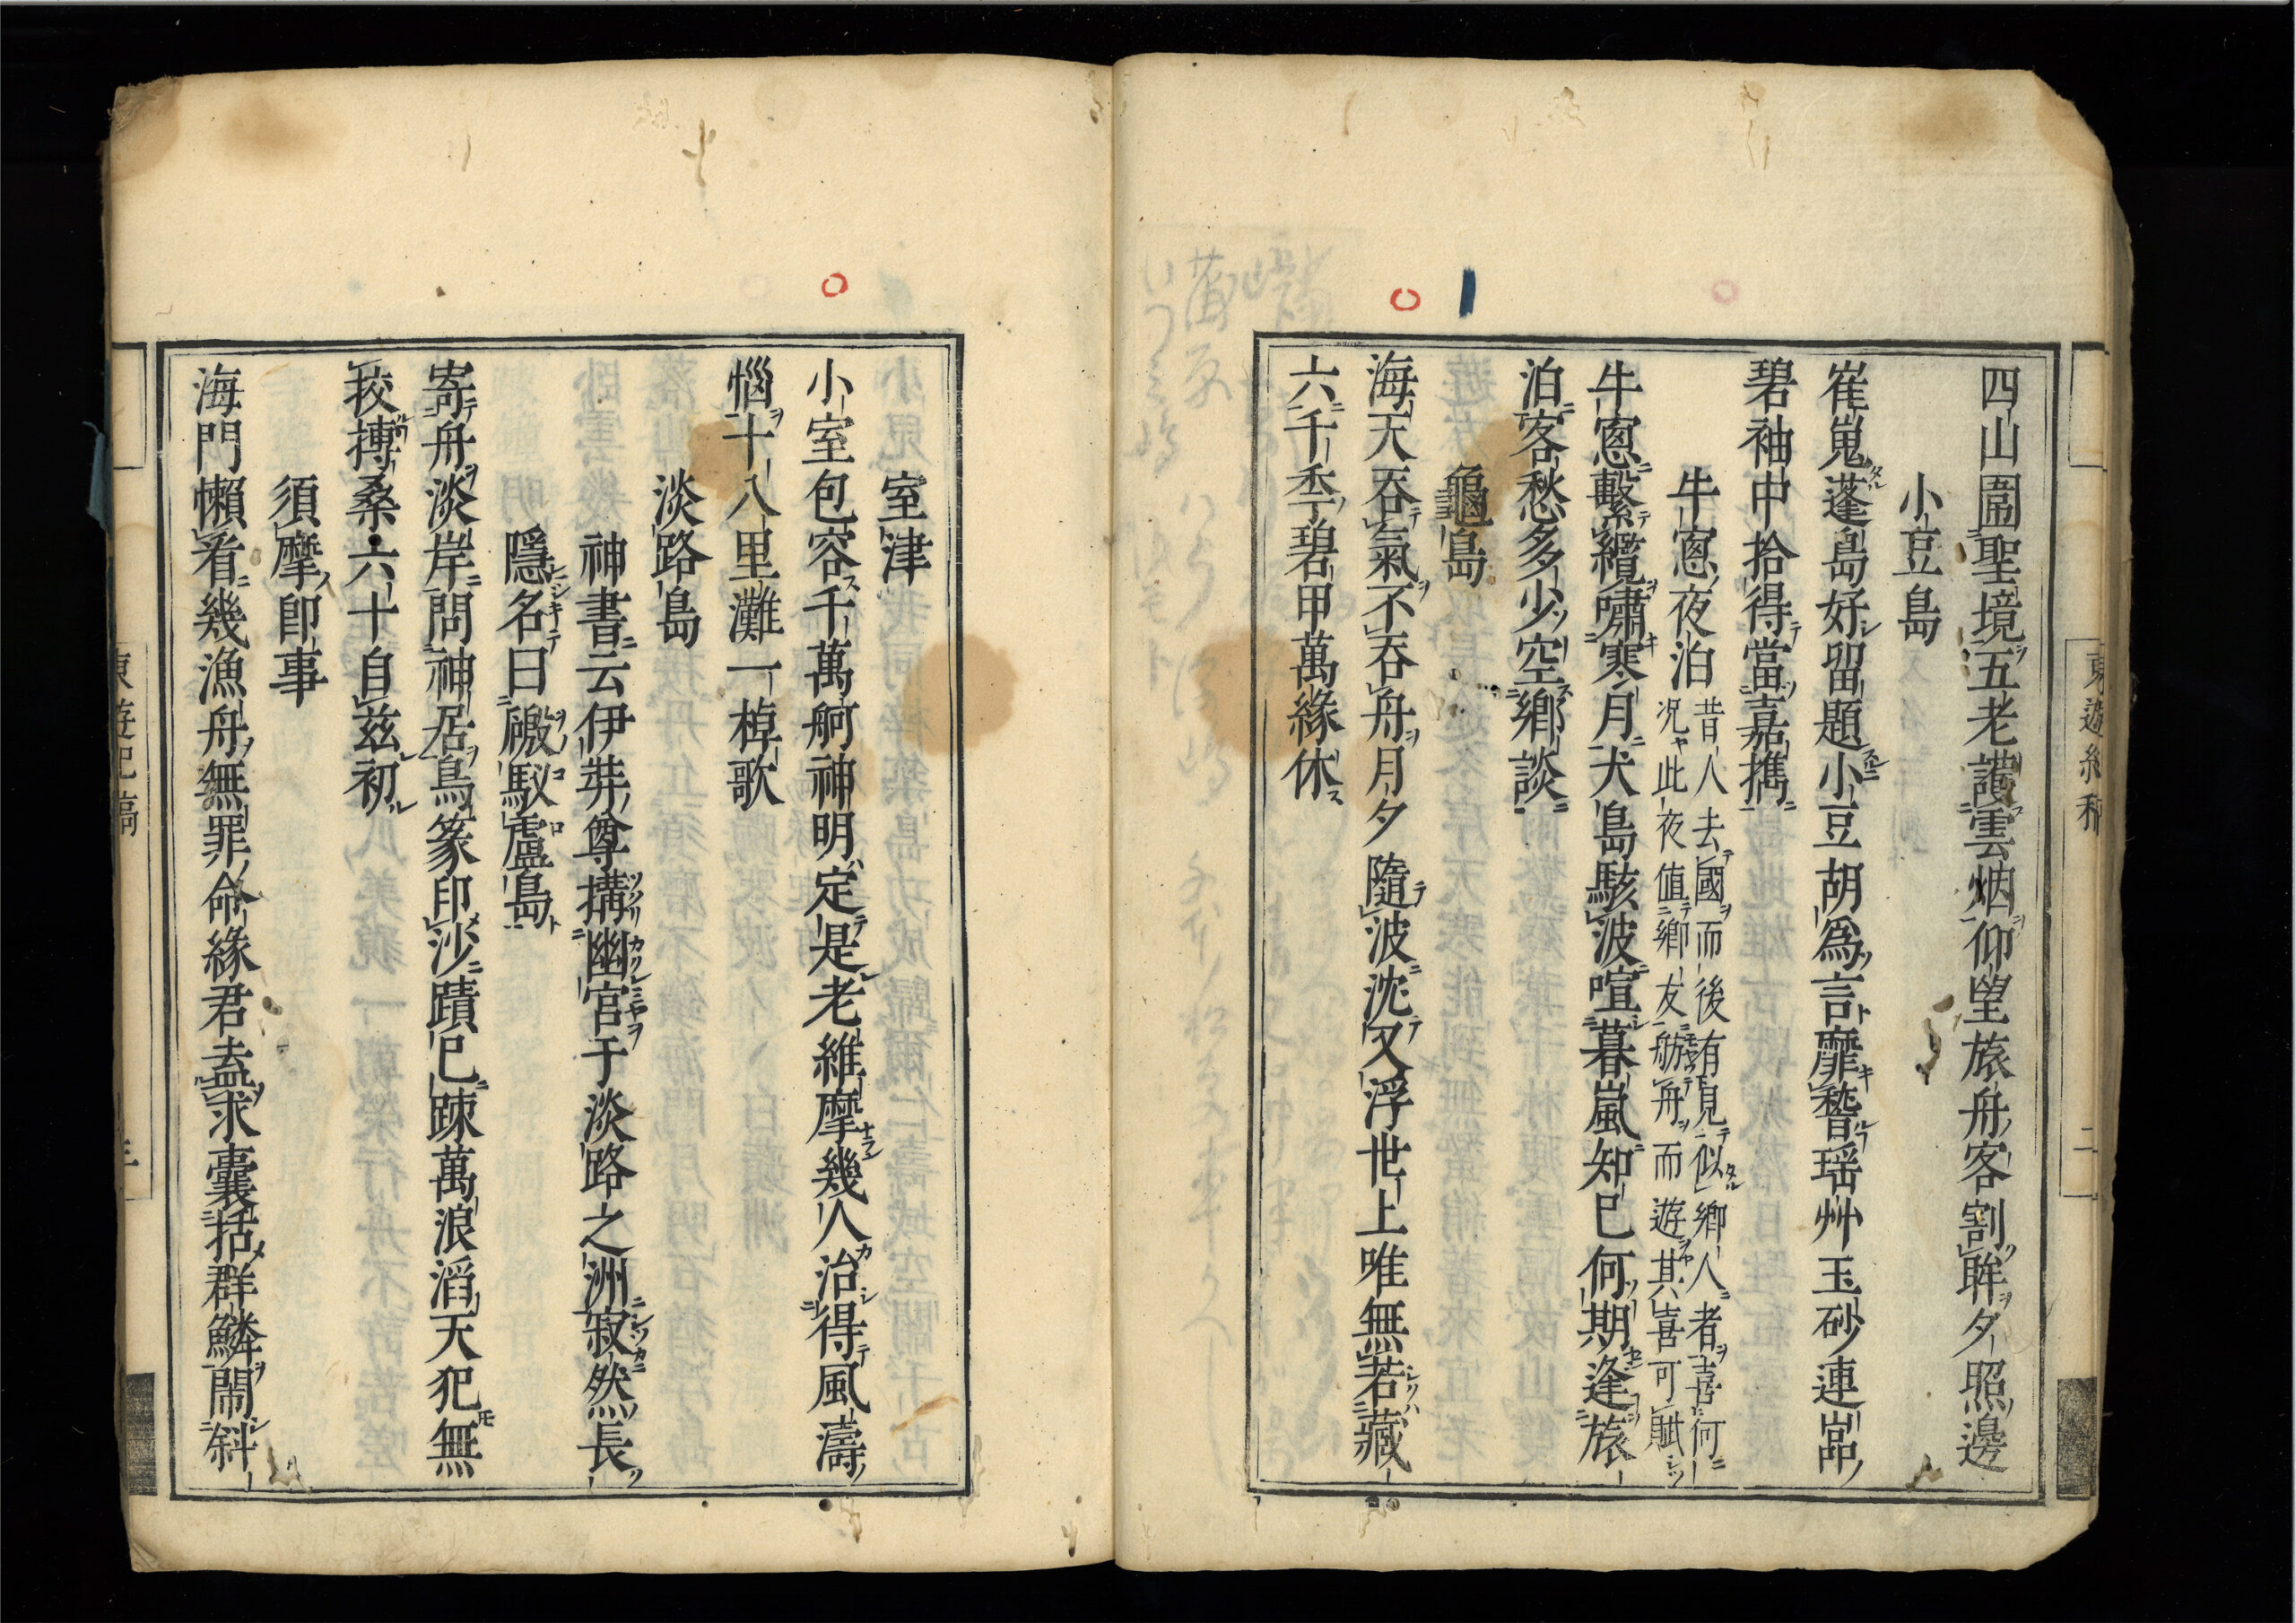 四山圍聖境五老護雲烟仰望旅舟客割眸夕照邊
小豆島
崔嵬蓬島好留題小豆胡爲言靡嵆瑶艸玉砂連嵓
碧袖中拾得當嘉擕
牛窓夜泊
昔人去國而後有見似鄉人者喜何
况此夜値鄉友舫舟而遊其喜可賦
牛窓繫纜嘯寒月犬島駭波喧暮嵐知已何期逢旅
泊客愁多少空鄉談
龜島
海天吞氣不吞舟月夕隨波沈又浮世上唯無若藏
六千秊碧甲萬緣休
東遊紀稿
二
室津
小室包容千萬舸神明定是老維摩幾人治得風濤
惱十八里灘一棹歌
淡路島
神書云伊弉尊搆幽宮于淡路之洲寂然長
隱名曰磤馭盧島
寄舟淡岸問神居鳥篆印沙蹟已踈萬浪滔天犯無
我摶桑六十自茲初
須摩卽事
海門懶看幾漁舟無罪命緣君盍求囊括群鱗鬧斜